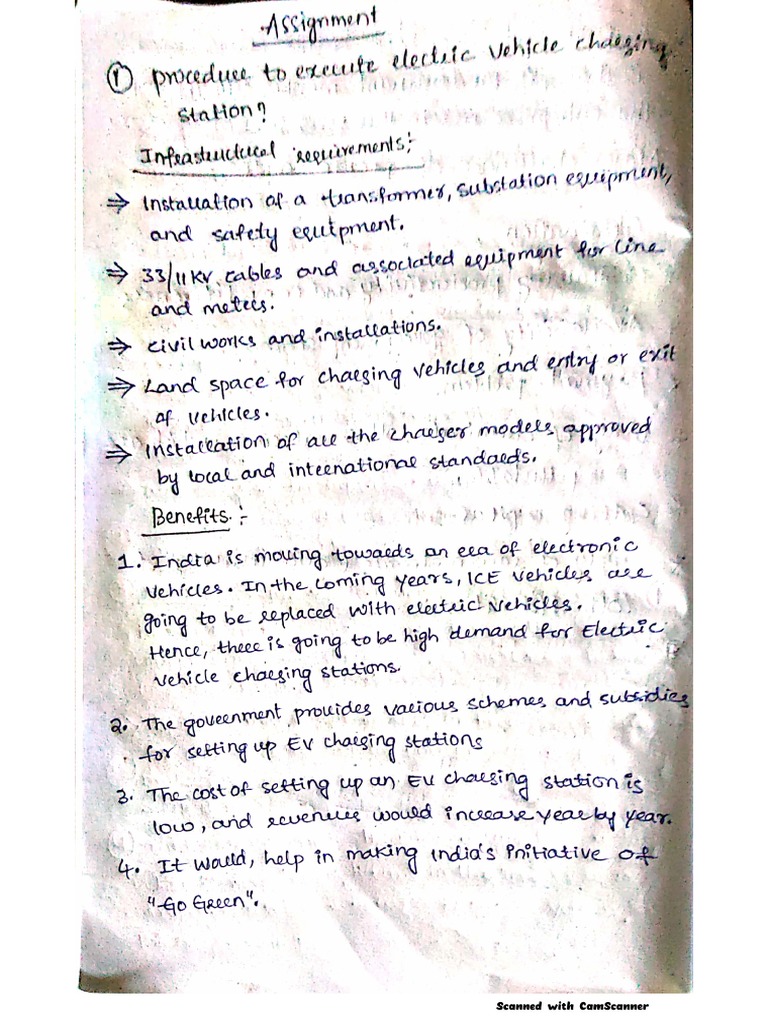 Assignment
① procedure to execute electric vehicle charging
station?
Infrastructural requirements:-
⇒ Installation of a transformer, substation equipment,
and safety equipment.
⇒ 33/11KV cables and associated equipment for line
and meters.
⇒ civil works and installations.
⇒ Land space for charging vehicles and entry or exit
of vehicles.
⇒ Installation of all the charger models approved
by local and international standards.
Benefits:-
1. India is moving towards an era of electronic
vehicles. In the coming years, ICE vehicles are
going to be replaced with electric vehicles.
Hence, there is going to be high demand for Electric
vehicle charging stations.
2. The government provides various schemes and subsidies
for setting up EV charging stations
3. The cost of setting up an EV charging station is
low, and revenues would increase year by year.
4. It would, help in making India's initiative of
"Go Green".
Scanned with CamScanner